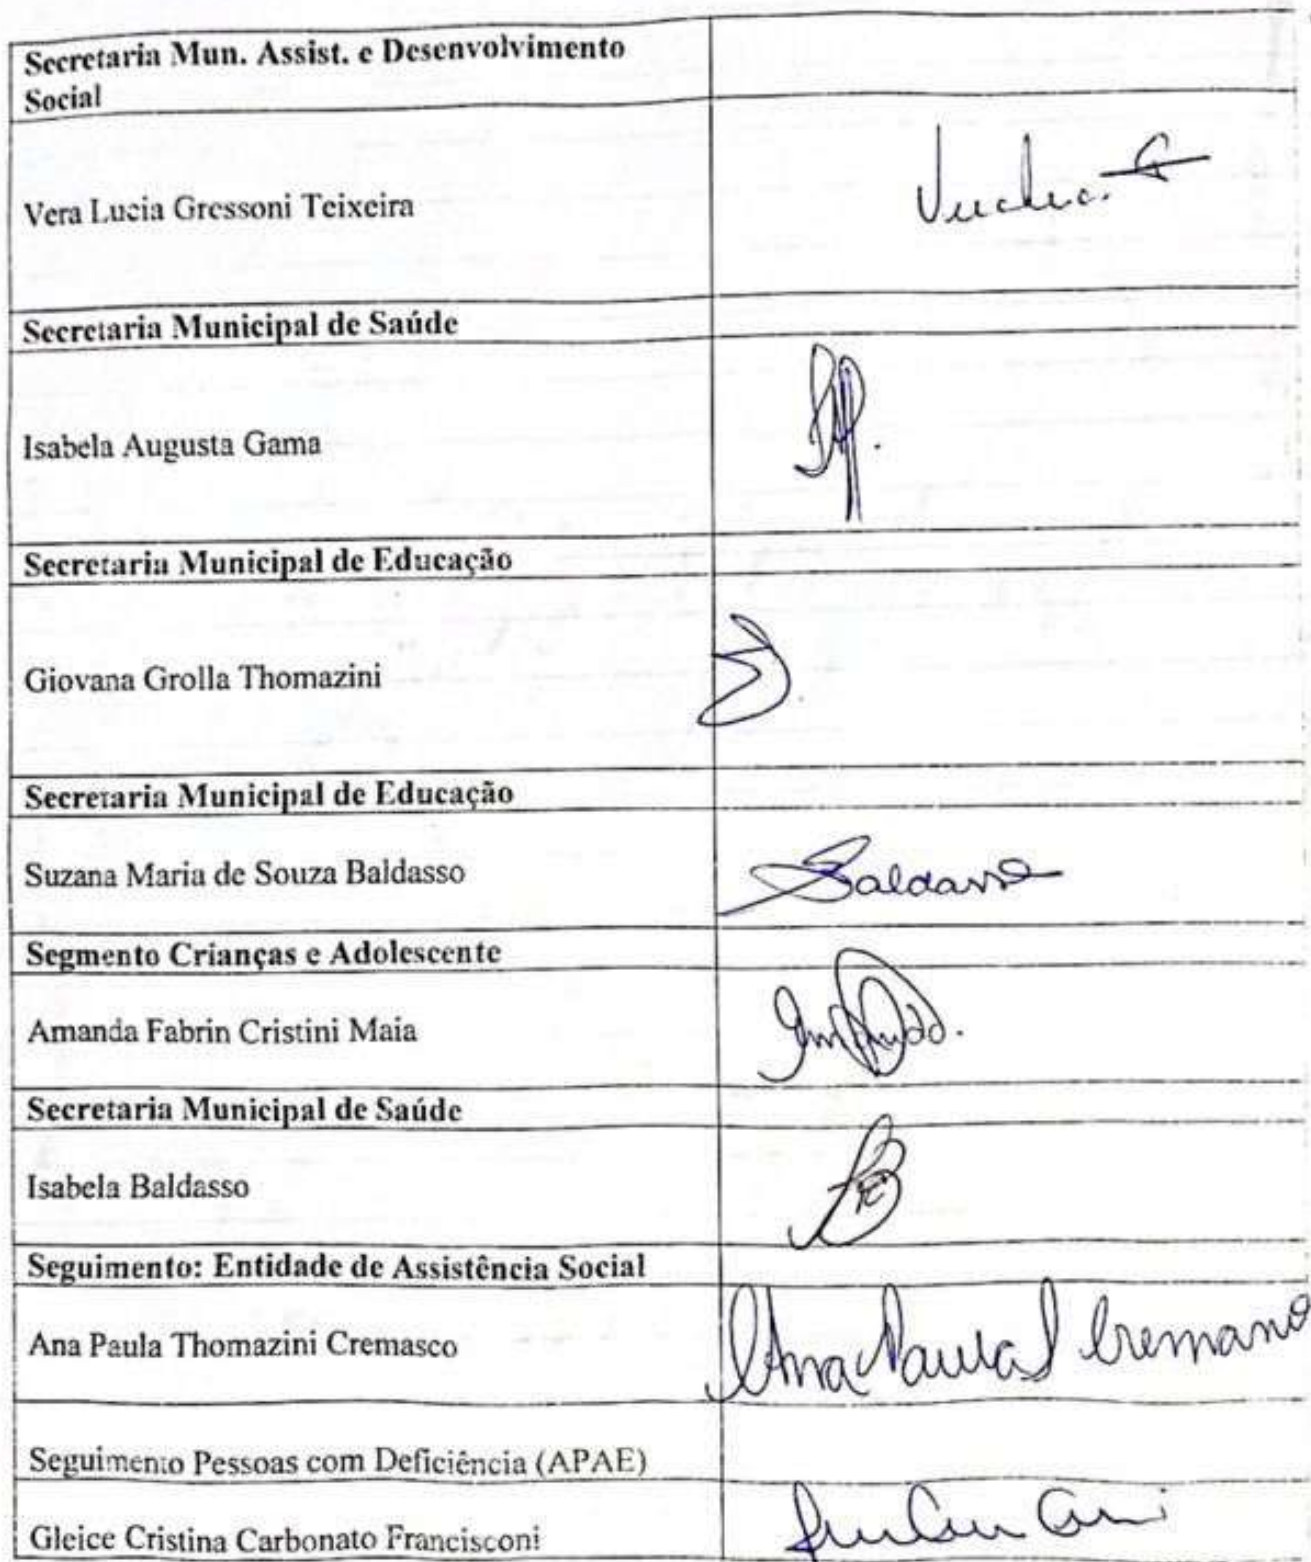 Secretaria Mun. Assist. e Desenvolvimento
Social
Vera Lucia Gressoni Teixeira
Secretaria Municipal de Saúde
Isabela Augusta Gama
Secretaria Municipal de Educação
Giovana Grolla Thomazini
Secretaria Municipal de Educação
Suzana Maria de Souza Baldasso Baldasso
Segmento Crianças e Adolescente
Amanda Fabrin Cristini Maia
Secretaria Municipal de Saúde
Isabela Baldasso
Seguimento: Entidade de Assistência Social
Ana Paula Thomazini Cremasco Ana Paula T Cremasco
Seguimento Pessoas com Deficiência (APAE)
Gleice Cristina Carbonato Francisconi